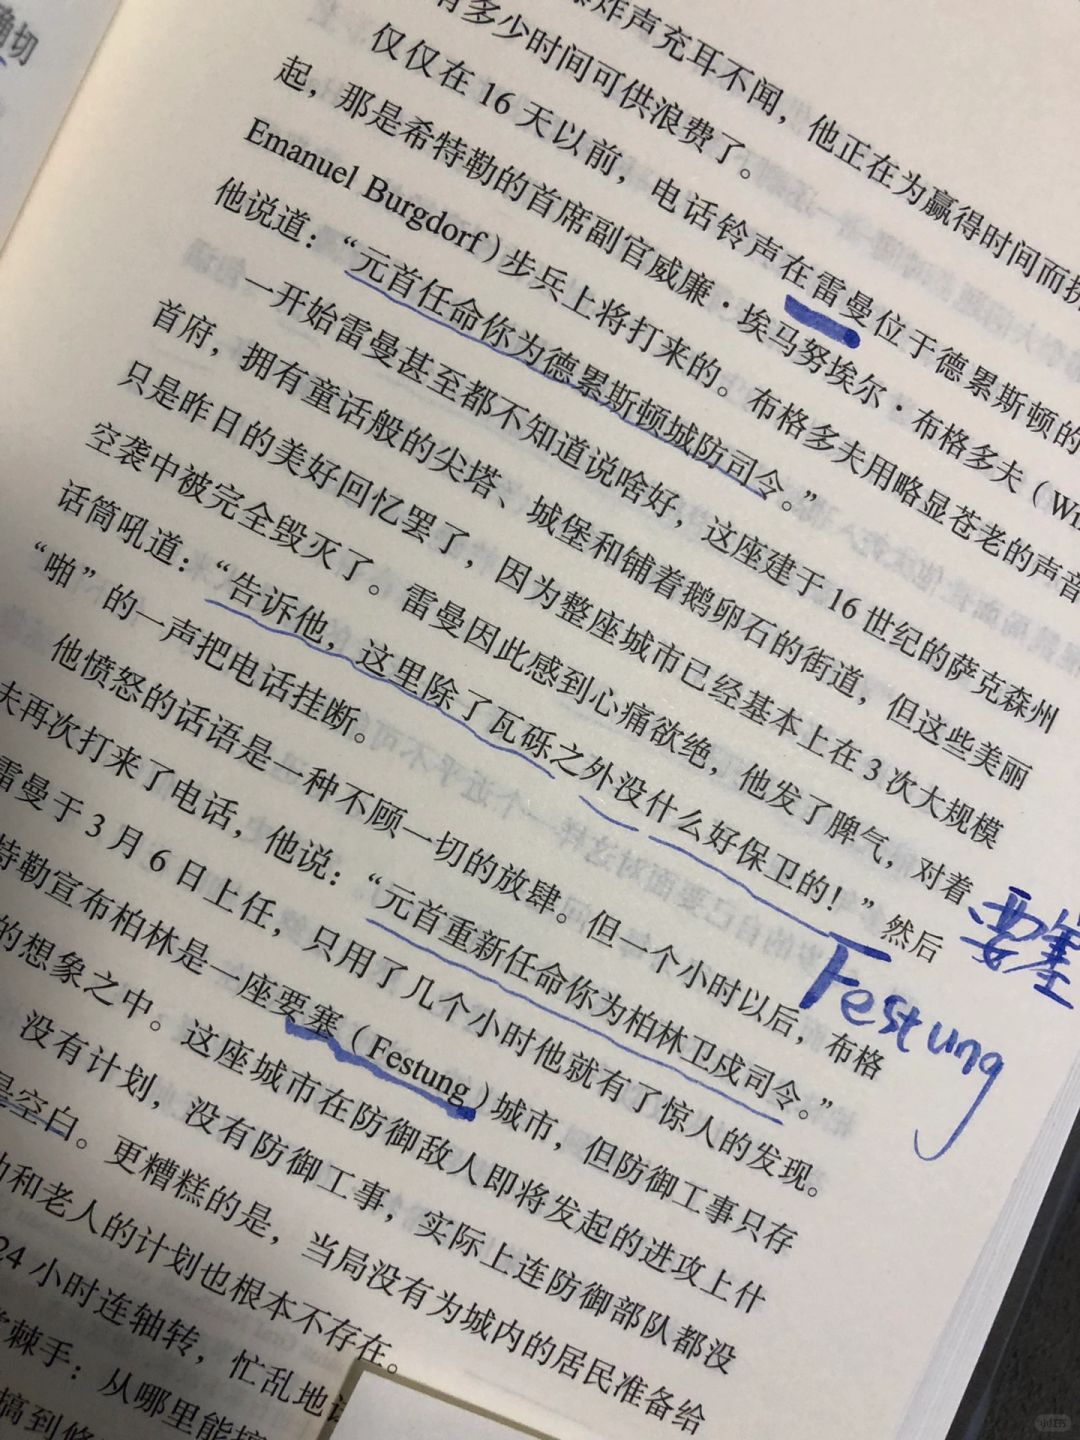 确切
炸声充耳不闻，他正在为赢得时间而
有多少时间可供浪费了。
仅仅在16天以前，电话铃声在雷曼位于德累斯顿的
起，那是希特勒的首席副官威廉·埃马努埃尔·布格多夫（Wi
Emanuel Burgdorf）步兵上将打来的。布格多夫用略显苍老的声音
他说道：“元首任命你为德累斯顿城防司令。”
一开始雷曼甚至都不知道说啥好，这座建于16世纪的萨克森州
首府，拥有童话般的尖塔、城堡和铺着鹅卵石的街道，但这些美丽
只是昨日的美好回忆罢了，因为整座城市已经基本上在3次大规模
空袭中被完全毁灭了。雷曼因此感到心痛欲绝，他发了脾气，对着
话筒吼道：“告诉他，这里除了瓦砾之外没什么好保卫的！”然后
“啪”的一声把电话挂断。
他愤怒的话语是一种不顾一切的放肆。但一个小时以后，布格
夫再次打来了电话，他说：“元首重新任命你为柏林卫戍司令。”
雷曼于3月6日上任，只用了几个小时他就有了惊人的发现。
特勒宣布柏林是一座要塞（Festung）城市，但防御工事只存
的想象之中。这座城市在防御敌人即将发起的进攻上什
没有计划，没有防御工事，实际上连防御部队都没
是空白。更糟糕的是，当局没有为城内的居民准备给
和老人的计划也根本不存在。
24小时连轴转，忙乱地
棘手：从哪里能搞
搞到修
要塞
Festung
小红书